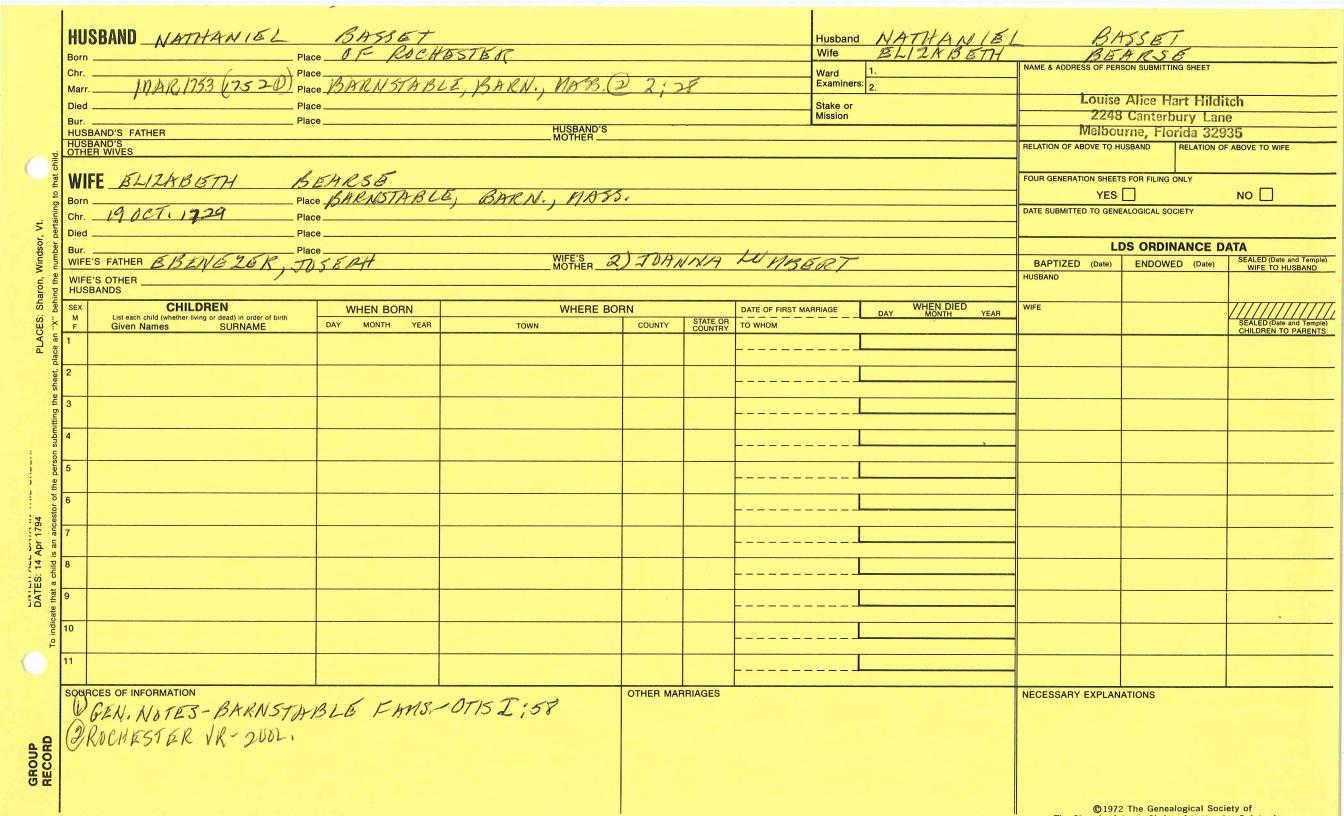 HUSBAND NATHANIEL BASSET
Born Place OF ROCHESTER
Chr. Place
Marr. MAR 1753 (1752①) Place BARNSTABLE, BARN., MASS. ② 2;28
Died Place
Bur. Place
HUSBAND'S FATHER HUSBAND'S MOTHER
HUSBAND'S OTHER WIVES
Husband NATHANIEL BASSET
Wife ELIZABETH BEARSE
Ward Examiners: 1.
2.
Stake or Mission
NAME & ADDRESS OF PERSON SUBMITTING SHEET
Louise Alice Hart Hilditch
2248 Canterbury Lane
Melbourne, Florida 32935
RELATION OF ABOVE TO HUSBAND RELATION OF ABOVE TO WIFE
FOUR GENERATION SHEETS FOR FILING ONLY
YES NO
DATE SUBMITTED TO GENEALOGICAL SOCIETY
WIFE ELIZABETH BEARSE
Born Place BARNSTABLE, BARN., MASS.
Chr. 19 OCT. 1729 Place
Died Place
Bur. Place
WIFE'S FATHER EBENEZER, JOSEPH WIFE'S MOTHER 2) JOANNA LUMBERT
WIFE'S OTHER HUSBANDS
LDS ORDINANCE DATA
BAPTIZED (Date) ENDOWED (Date) SEALED (Date and Temple) WIFE TO HUSBAND
HUSBAND
WIFE
SEALED (Date and Temple) CHILDREN TO PARENTS
SEX M F
CHILDREN
List each child (whether living or dead) in order of birth
Given Names SURNAME
WHEN BORN
DAY MONTH YEAR
WHERE BORN
TOWN COUNTY STATE OR COUNTRY
DATE OF FIRST MARRIAGE
TO WHOM
WHEN DIED
DAY MONTH YEAR
1
2
3
4
5
6
7
8
9
10
11
SOURCES OF INFORMATION
① GEN. NOTES-BARNSTABLE FAMS-OTIS I;58
② ROCHESTER VR- 2VOL.
OTHER MARRIAGES
NECESSARY EXPLANATIONS
©1972 The Genealogical Society of
PLACES: Sharon, Windsor, Vt.
DATES: 14 Apr 1794
To indicate that a child is an ancestor of the person submitting the sheet, place an "X" behind the number pertaining to that child.
GROUP
RECORD